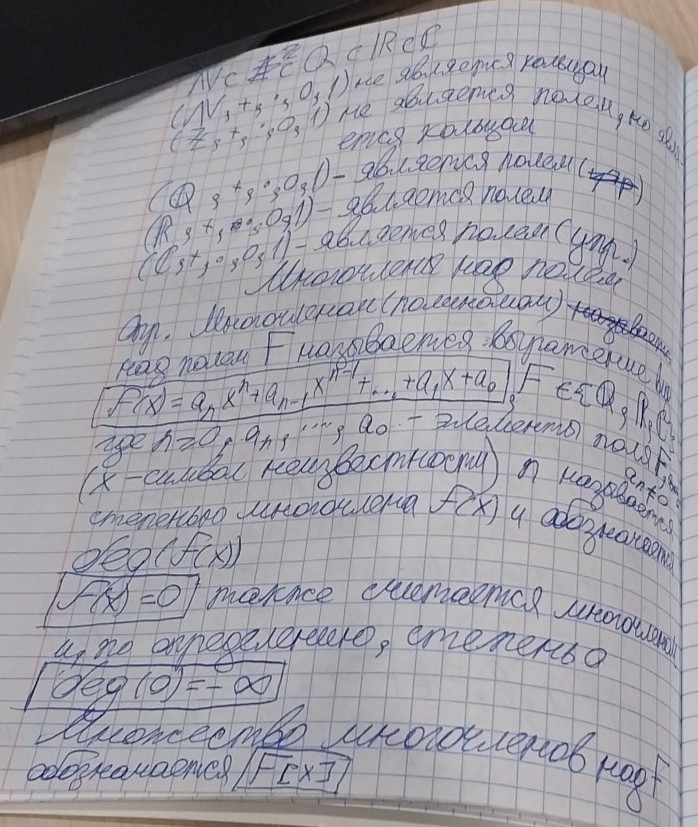 ℕ ⊂ ℤ ⊂ ℚ ⊂ ℝ ⊂ ℂ
(ℕ, +, ·, 0, 1) не является кольцом
(ℤ, +, ·, 0, 1) не является полем, но явля-
ется кольцом
(ℚ, +, ·, 0, 1) - является полем
(ℝ, +, ·, 0, 1) - является полем
(ℂ, +, ·, 0, 1) - является полем (упр.)
Многочлены над полем
Опр. Многочленом (полиномом)
над полем F называется выражение вида
f(x) = aₙxⁿ + aₙ₋₁xⁿ⁻¹ + ... + a₁x + a₀, F ∈ {ℚ, ℝ, ℂ,
где n ≥ 0, aₙ, ..., a₀ - элементы поля F, aₙ ≠ 0
(x - символ неизвестности) n называется
степенью многочлена f(x) и обозначается
deg(f(x))
f(x) = 0 также считается многочленом
и, по определению, степень
deg(0) = -∞
Множество многочленов над F
обозначается F[x]